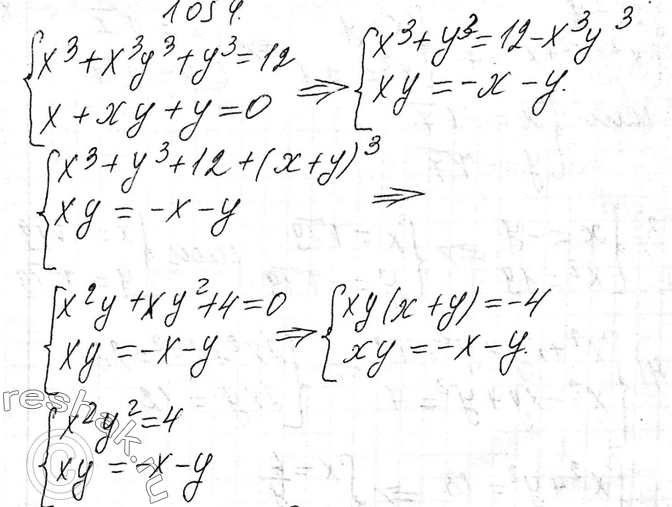 1054.
{x³+x³y³+y³=12 ⇒ {x³+y³=12-x³y³
x+xy+y=0 xy=-x-y.
{x³+y³+12+(x+y)³
xy=-x-y ⇒
{x²y+xy²+4=0 ⇒ {xy(x+y)=-4
xy=-x-y xy=-x-y.
{x²y²=4
xy=-x-y
reshak.ru